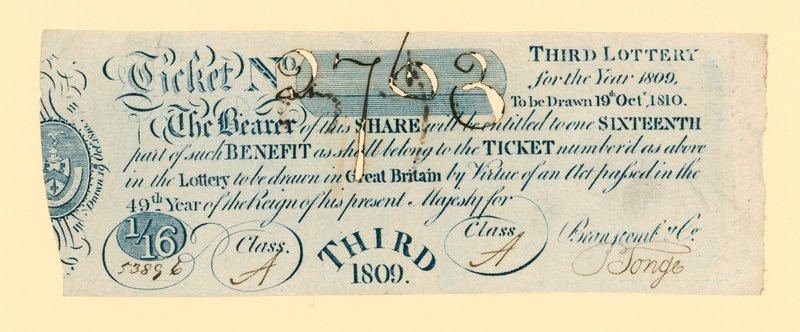 Ticket No. 2,793
THIRD LOTTERY
for the Year 1809,
To be Drawn 19th Octr. 1810.
The Bearer of this SHARE will be entitled to one SIXTEENTH
part of such BENEFIT as shall belong to the TICKET number'd as above
in the Lottery to be drawn in Great Britain by Virtue of an Act passed in the
49th Year of the Reign of his present Majesty for
1/16
53896
Class.
A
THIRD
1809.
Class.
A
Branscomb & Co.
J Tonge